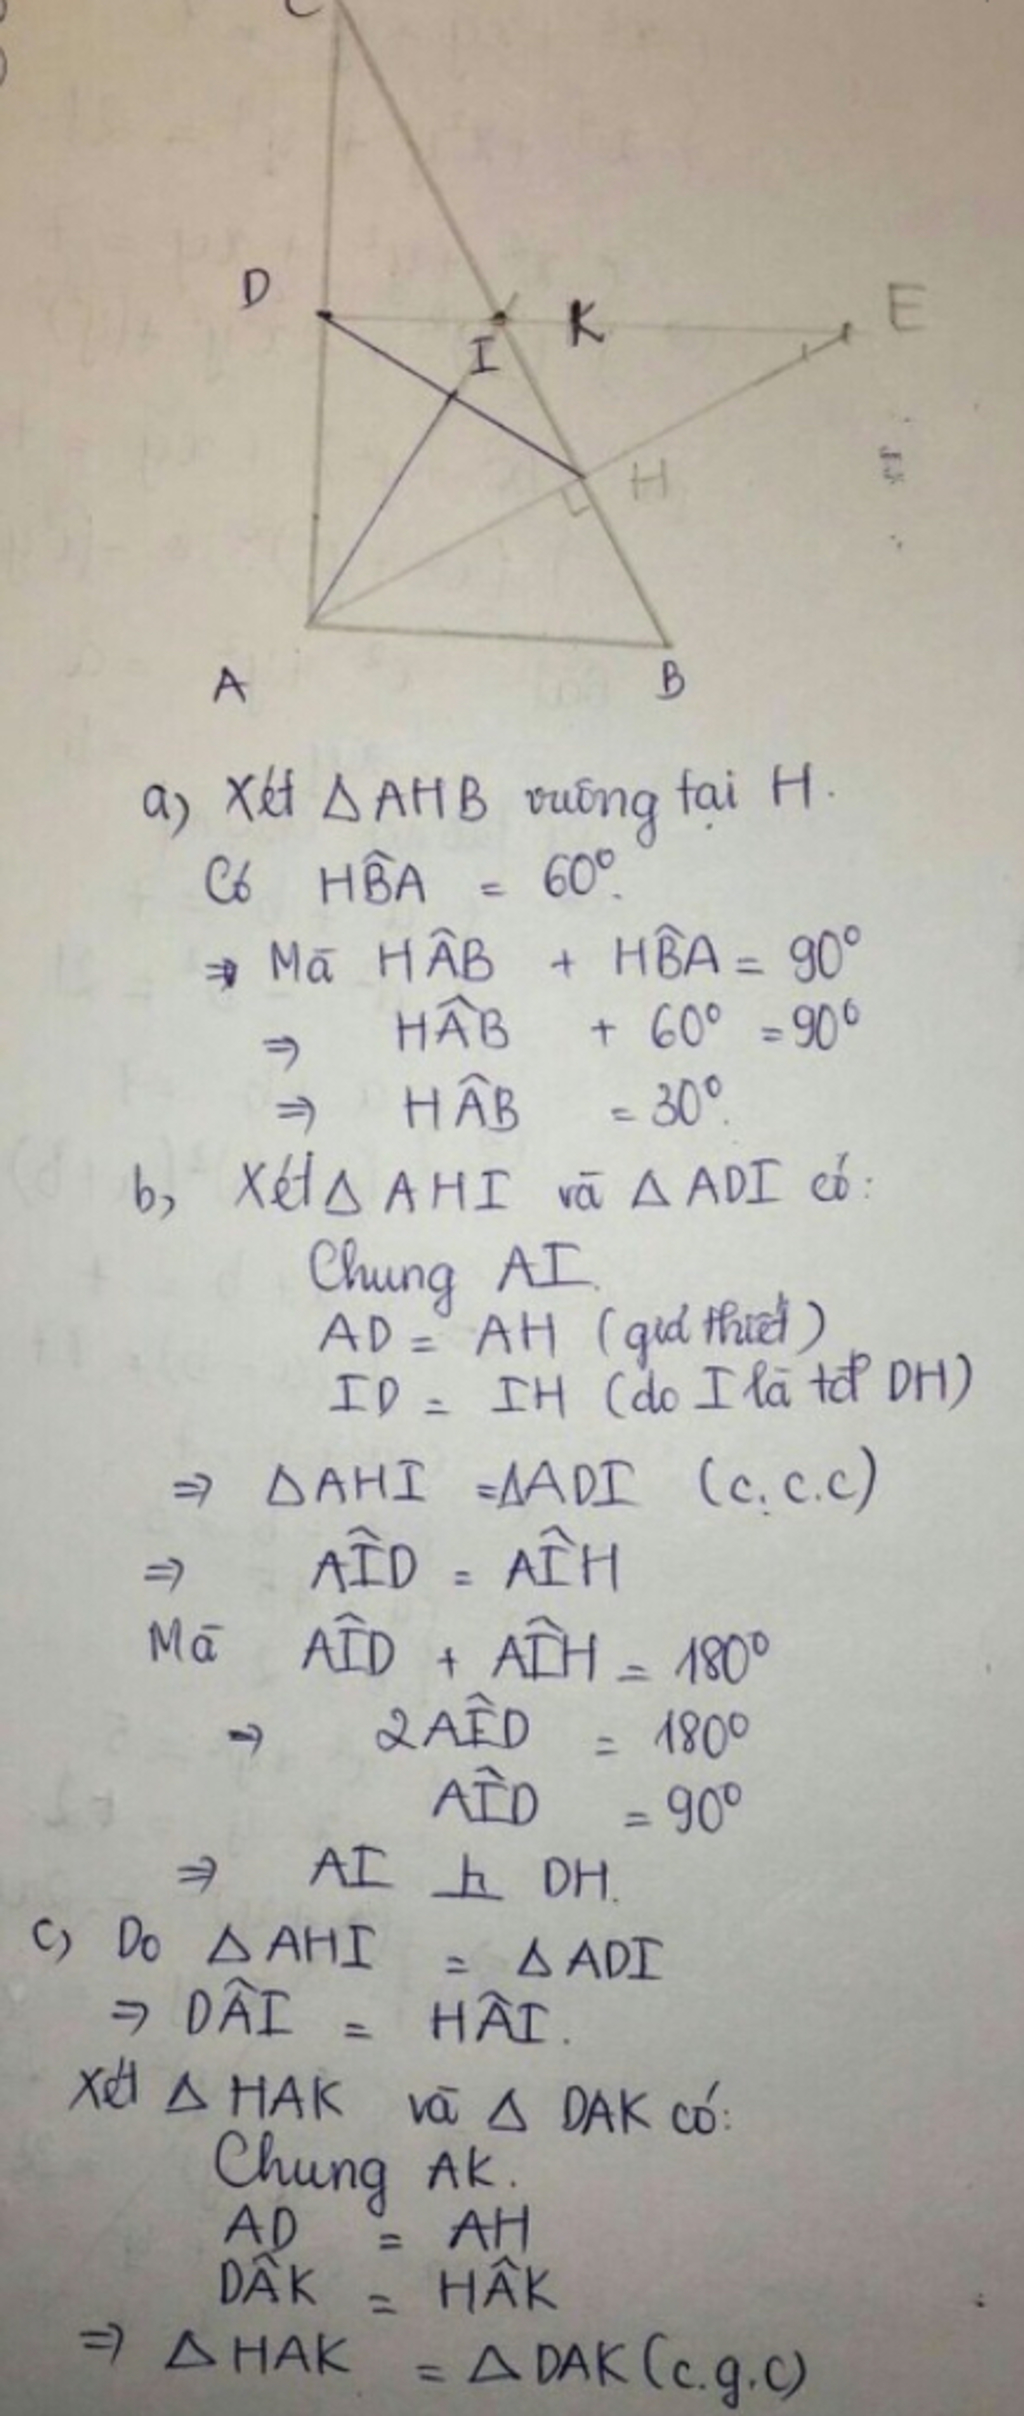 C
D
E
K
I
H
A
B
a) Xét Δ AHB vuông tại H.
Có HB̂A = 60°.
⇒ Mà HÂB + HB̂A = 90°
⇒ HÂB + 60° = 90°
⇒ HÂB = 30°.
b, Xét Δ AHI và Δ ADI có:
Chung AI.
AD = AH (giả thiết)
ID = IH (do I là tđ DH)
⇒ ΔAHI = ΔADI (c.c.c)
⇒ AÎD = AÎH
Mà AÎD + AÎH = 180°
⇒ 2AÊD = 180°
AÎD = 90°
⇒ AI ⊥ DH.
c) Do Δ AHI = Δ ADI
⇒ DÂI = HÂI.
Xét Δ HAK và Δ DAK có:
Chung AK.
AD = AH
DÂK = HÂK
⇒ Δ HAK = Δ DAK (c.g.c)